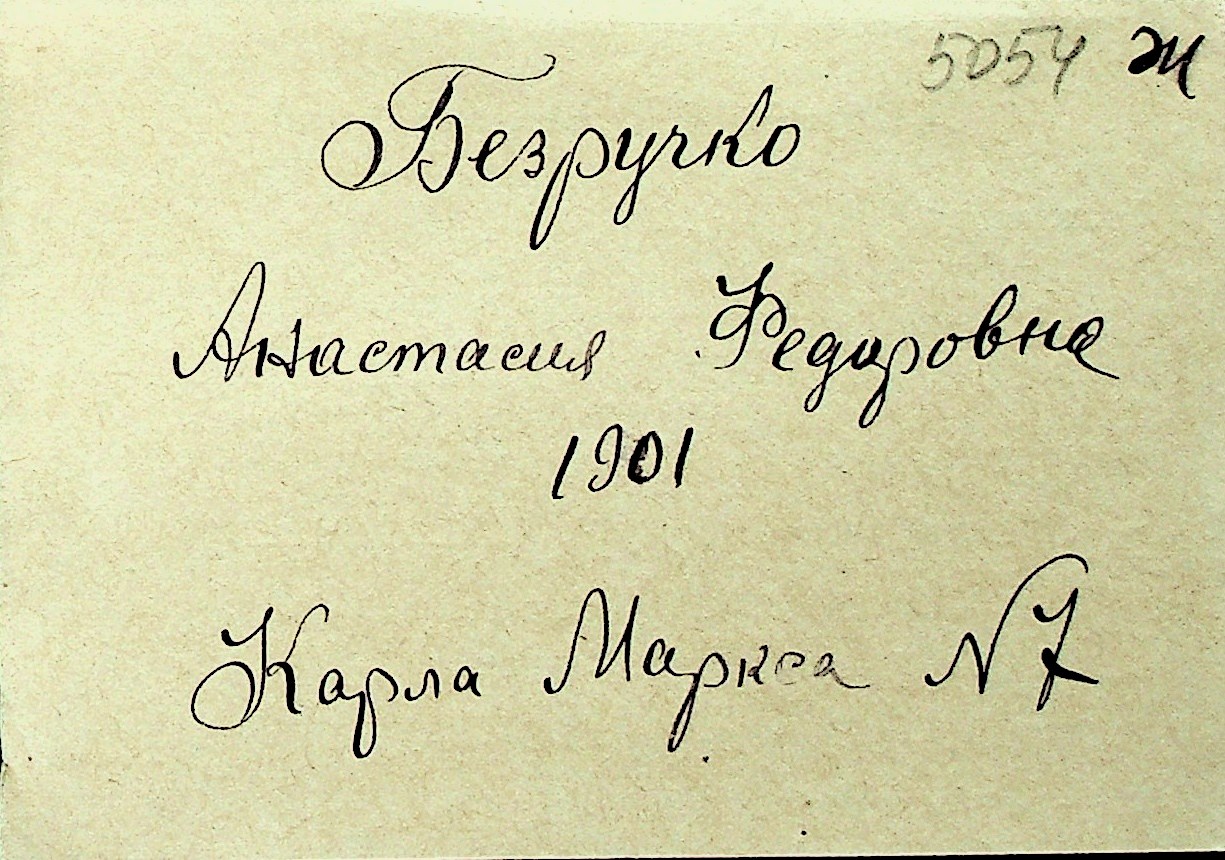 5054 Ж
Безручко
Анастасия Федоровна
1901
Карла Маркса N 7